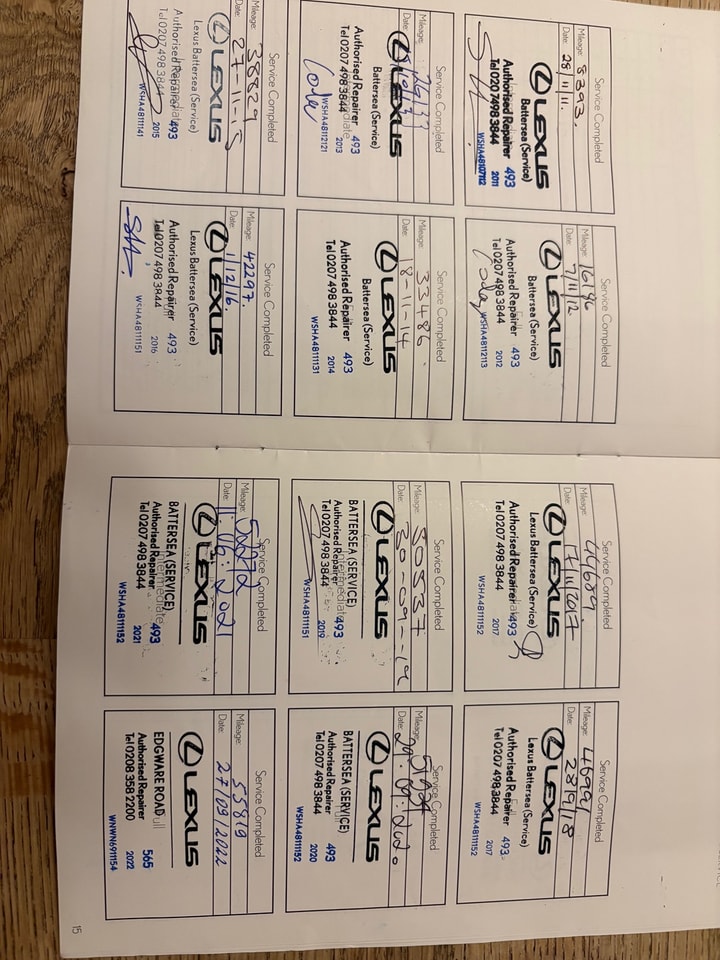 Service Completed
Mileage: 8393.
Date: 28/11/11.
LEXUS
Battersea (Service)
Authorised Repairer 493
Tel 0207 498 3844 2011
WSHA48107112
Service Completed
Mileage:
Date: 7/11/12
LEXUS
Battersea (Service)
Authorised Repairer 493
Tel 0207 498 3844 2012
WSHA48112113
Service Completed
Mileage:
Date:
LEXUS
Battersea (Service)
Authorised Repairer 493
Tel 0207 498 3844 2013
WSHA48112121
Service Completed
Mileage: 33486.
Date: 18-11-14
LEXUS
Battersea (Service)
Authorised Repairer 493
Tel 0207 498 3844 2014
WSHA48111131
Service Completed
Mileage: 38829
Date: 27-11-15
LEXUS
Lexus Battersea (Service)
Authorised Repairer 493
Tel 0207 498 3844 2015
WSHA48111141
Service Completed
Mileage: 42297.
Date: 1/12/16.
LEXUS
Lexus Battersea (Service)
Authorised Repairer 493
Tel 0207 498 3844 2016
WSHA48111151
Service Completed
Mileage: 44689.
Date: 17/11/2017
LEXUS
Lexus Battersea (Service)
Authorised Repairer 493
Tel 0207 498 3844 2017
WSHA48111152
Service Completed
Mileage: 46991
Date: 28/9/18
LEXUS
Lexus Battersea (Service)
Authorised Repairer 493
Tel 0207 498 3844 2017
WSHA48111152
Service Completed
Mileage: 50537
Date: 30-09-19
LEXUS
BATTERSEA (SERVICE)
Intermediate
Authorised Repairer 493
Tel 0207 498 3844 2019
WSHA48111151
Service Completed
Mileage:
Date:
LEXUS
BATTERSEA (SERVICE)
Authorised Repairer 493
Tel 0207 498 3844 2020
WSHA48111152
Service Completed
Mileage: 52272
Date: 11.06.2021
LEXUS
BATTERSEA (SERVICE)
Intermediate
Authorised Repairer 493
Tel 0207 498 3844 2021
WSHA48111152
Service Completed
Mileage: 55819
Date: 27/09/2022
LEXUS
EDGWARE ROAD
Authorised Repairer 565
Tel 0208 358 2200 2022
WNWN6911154
15